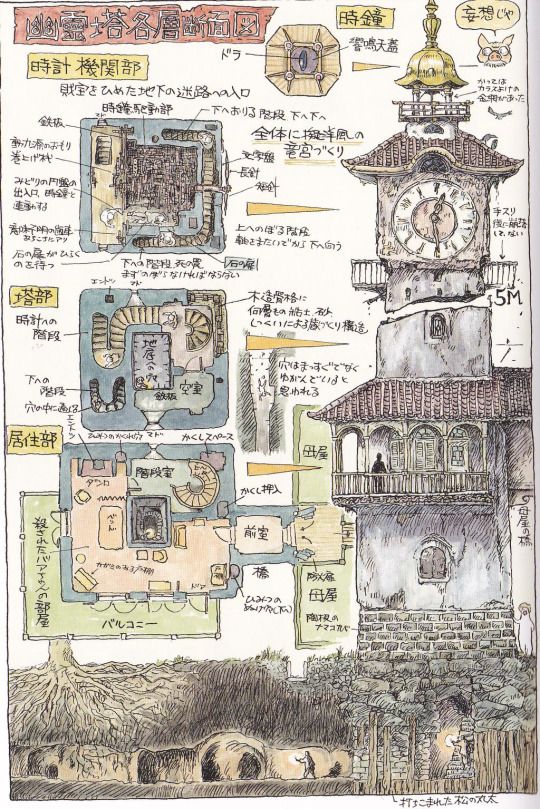 幽霊塔各層断面図
時鐘
妄想じゃ
ドラ
響鳴天蓋
時計機関部
財宝をひめた地下の迷路への入口
時鐘駆動部
下へおりる階段 下へ下へ
全体に擬洋風の
竜宮づくり
鉄板
マド
動力源のおもり
巻上げ機
文字盤
長針
短針
みどりの円盤の
出入口、時鐘と
連動する
かつては
カラスよけの
金網があった
手スリ
後に崩落
して、ない
上へのぼる階段
軸をまたいでから下へ向う
石の扉がひらく
のを待つ
下への階段 死の罠
まずのぼらなければならない
石の扉
5M
塔部
エントツ
マド
時計への
階段
木造骨格に
何層もの粘土、砂、
しっくいによる蔵づくり構造
地底への穴
空室
鉄板
穴はまっすぐでなく
ゆがんでいると
思われる
下への
階段
穴の中に通じる
居住部
エントツ
マド
かくしスペース
母屋
階段室
かくし押入
ダンロ
べっど
殺されたバアさんの部屋
前室
橋
ドア
バルコニー
ひみつの
ぬけ穴
防火扉
母屋
腰板の
ナマコカベ
母屋の橋
打ちこまれた松の丸太